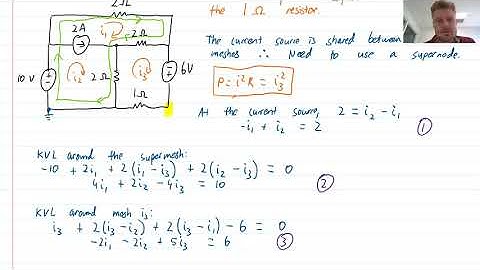 the 1 Ω resistor.
The current source is shared between
meshes ∴ Need to use a supernode.
P = i²R = i₃²
At the current source, 2 = i₂ - i₁
-i₁ + i₂ = 2 ①
2Ω
2A
i₁
2Ω
10 V
i₂
2Ω
i₃
6V
1Ω
KVL around the supermesh:
-10 + 2i₁ + 2(i₁ - i₃) + 2(i₂ - i₃) = 0
4i₁ + 2i₂ - 4i₃ = 10 ②
KVL around mesh i₃:
i₃ + 2(i₃ - i₂) + 2(i₃ - i₁) - 6 = 0
-2i₁ - 2i₂ + 5i₃ = 6 ③